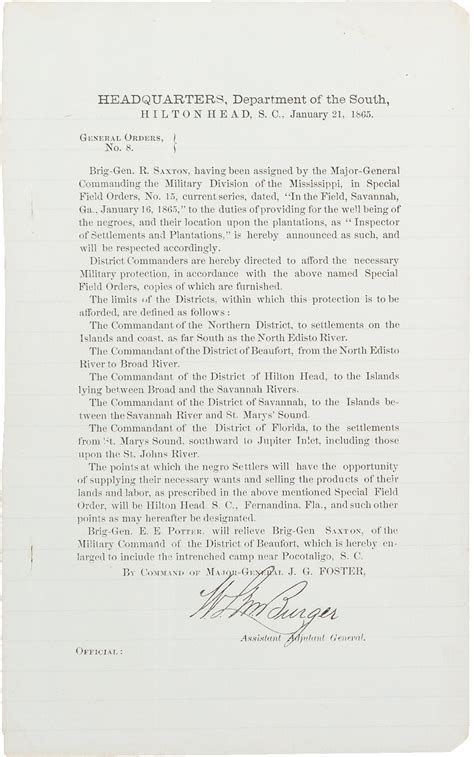 HEADQUARTERS, Department of the South,
HILTON HEAD, S. C., January 21, 1865.
GENERAL ORDERS,
No. 8.
Brig-Gen. R. SAXTON, having been assigned by the Major-General
Commanding the Military Division of the Mississippi, in Special
Field Orders, No. 15, current series, dated, "In the Field, Savannah,
Ga., January 16, 1865," to the duties of providing for the well being
of the negroes, and their location upon the plantations, as "Inspector
of Settlements and Plantations," is hereby announced as such, and
will be respected accordingly.
District Commanders are hereby directed to afford the necessary
Military protection, in accordance with the above named Special
Field Orders, copies of which are furnished.
The limits of the Districts, within which this protection is to be
afforded, are defined as follows :
The Commandant of the Northern District, to settlements on the
Islands and coast, as far South as the North Edisto River.
The Commandant of the District of Beaufort, from the North Edisto
River to Broad River.
The Commandant of the District of Hilton Head, to the Islands
lying between Broad and the Savannah Rivers.
The Commandant of the District of Savannah, to the Islands be-
tween the Savannah River and St. Marys' Sound.
The Commandant of the District of Florida, to the settlements
from St. Marys Sound, southward to Jupiter Inlet, including those
upon the St. Johns River.
The points at which the negro Settlers will have the opportunity
of supplying their necessary wants and selling the products of their
lands and labor, as prescribed in the above mentioned Special Field
Order, will be Hilton Head S. C., Fernandina, Fla., and such other
points as may hereafter be designated.
Brig-Gen. E. E. POTTER, will relieve Brig-Gen SAXTON, of the
Military Command of the District of Beaufort, which is hereby en-
larged to include the intrenched camp near Pocotaligo, S. C.
BY COMMAND OF MAJOR-GENERAL J. G. FOSTER,
W. L. M. Burger
Assistant Adjutant General.
OFFICIAL :